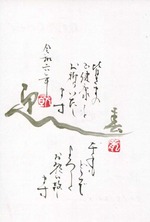 皆さまの
ご健康を
お祈りいたし
ます
迎春
今年も
どうぞ
よろしく
お願い致し
ます